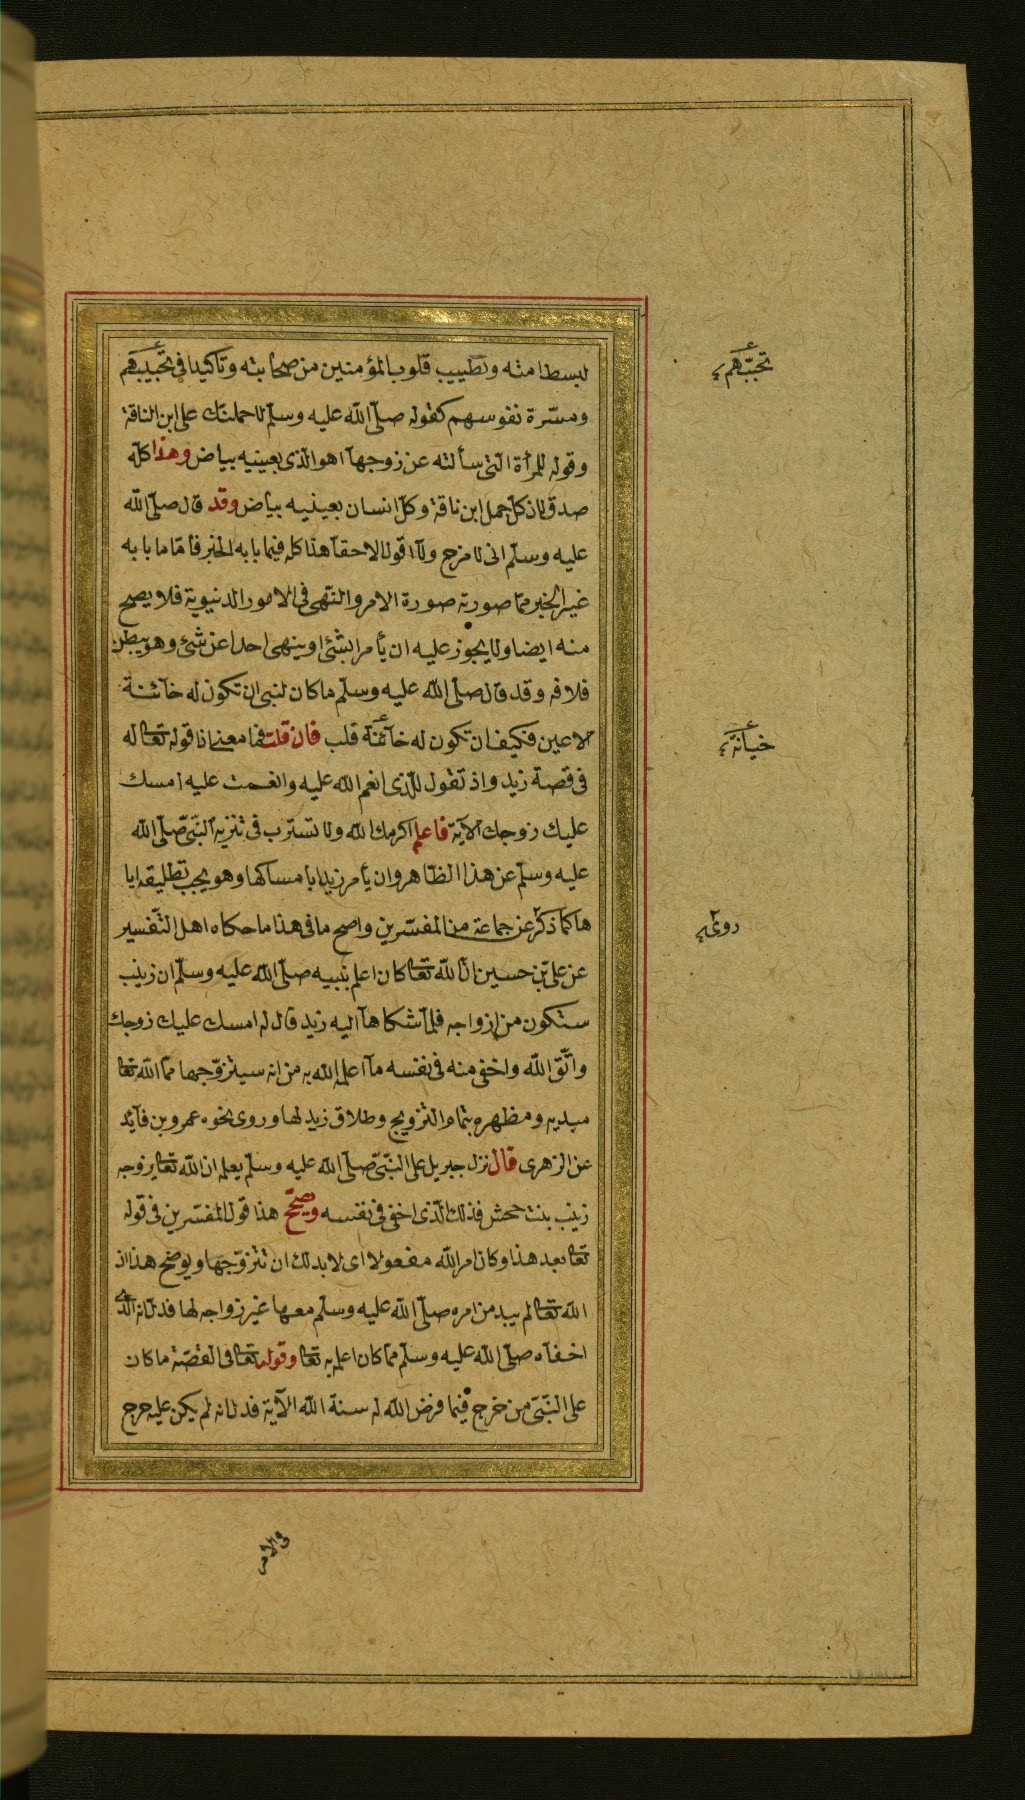 لبسط امته وتطييب قلوب المؤمنين من صحابته وتاكيدا فى تحبيبهم
ومسرة نفوسهم كقوله صلى الله عليه وسلم لاحملنك على ابن الناقة
وقوله للمرأة التى سألته عن زوجها اهو الذى بعينيه بياض وهذا كله
صدق لان كل جمل ابن ناقة وكل انسان بعينيه بياض وقد قال صلى الله
عليه وسلم انى لامزح ولا اقول الا حقا هذا كله فيما بابه الخبر فاما ما بابه
غير الخبر مما صورته صورة الامر والنهى فى الامور الدنيوية فلا يصح
منه ايضا ولا يجوز عليه ان يأمر بشئ او ينهى احدا عن شئ وهو يبطن
خلافه وقد قال صلى الله عليه وسلم ما كان لنبى ان تكون له خآئنة
الاعين فكيف ان تكون له خآئنة قلب فان قلت فما معنى اذا قوله تعالى له
فى قصة زيد واذ تقول للذى انعم الله عليه وانعمت عليه امسك
عليك زوجك الآية فاعلم اكرمك الله ولا تسترب فى تنزيه النبى صلى الله
عليه وسلم عن هذا الظاهر وان يأمر زيدا بامساكها وهو يحب تطليقه ايا
ها كما ذكر عن جماعة من المفسرين واصح ما فى هذا ما حكاه اهل التفسير
عن على بن حسين ان الله تعالى كان اعلم نبيه صلى الله عليه وسلم ان زينب
ستكون من ازواجه فلما شكاها اليه زيد قال له امسك عليك زوجك
واتق الله واخفى منه فى نفسه ما اعلمه الله به من انه سيتزوجها مما الله تعا
مبديه ومظهره بتمام التزويج وطلاق زيد لها وروى نحوه عمرو بن فآئد
عن الزهرى قال نزل جبريل على النبى صلى الله عليه وسلم يعلمه ان الله تعالى يزوجه
زينب بنت جحش فذلك الذى اخفى فى نفسه ويصحح هذا قول المفسرين فى قوله
تعالى بعد هذا وكان امر الله مفعولا اى لا بد لك ان تتزوجها ويوضح هذا ان
الله تعالى لم يبد من امره صلى الله عليه وسلم معها غير زواجه لها فدل انه الذى
اخفاه صلى الله عليه وسلم مما كان اعلمه به تعا وقوله تعالى فى القصة ما كان
على النبى من حرج فيما فرض الله له سنة الله الآية فدل انه لم يكن عليه حرج
فى الامر
تحببهم
خيانة
روى